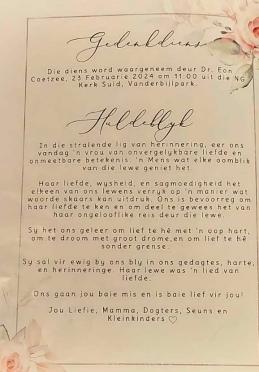 Gedenkdiens
Die diens word waargeneem deur Dr. Eon
Coetzee, 23 Februarie 2024 om 11:00 uit die NG
Kerk Suid, Vanderbijlpark.
Huldeblyk
In die stralende lig van herinnering, eer ons
vandag 'n vrou van onvergelykbare liefde en
onmeetbare betekenis. 'n Mens wat elke oomblik
van die lewe geniet het.
Haar liefde, wysheid, en sagmoedigheid het
elkeen van ons lewens verryk op 'n manier wat
woorde skaars kan uitdruk. Ons is bevoorreg om
haar liefde te ken en om deel te gewees het van
haar ongelooflike reis deur die lewe.
Sy het ons geleer om lief te hê met 'n oop hart,
om te droom met groot drome,en om lief te hê
sonder grense.
Sy sal vir ewig by ons bly in ons gedagtes, harte,
en herinneringe. Haar lewe was 'n lied van
liefde.
Ons gaan jou baie mis en is baie lief vir jou!
Jou Liefie, Mamma, Dogters, Seuns en
Kleinkinders ♡